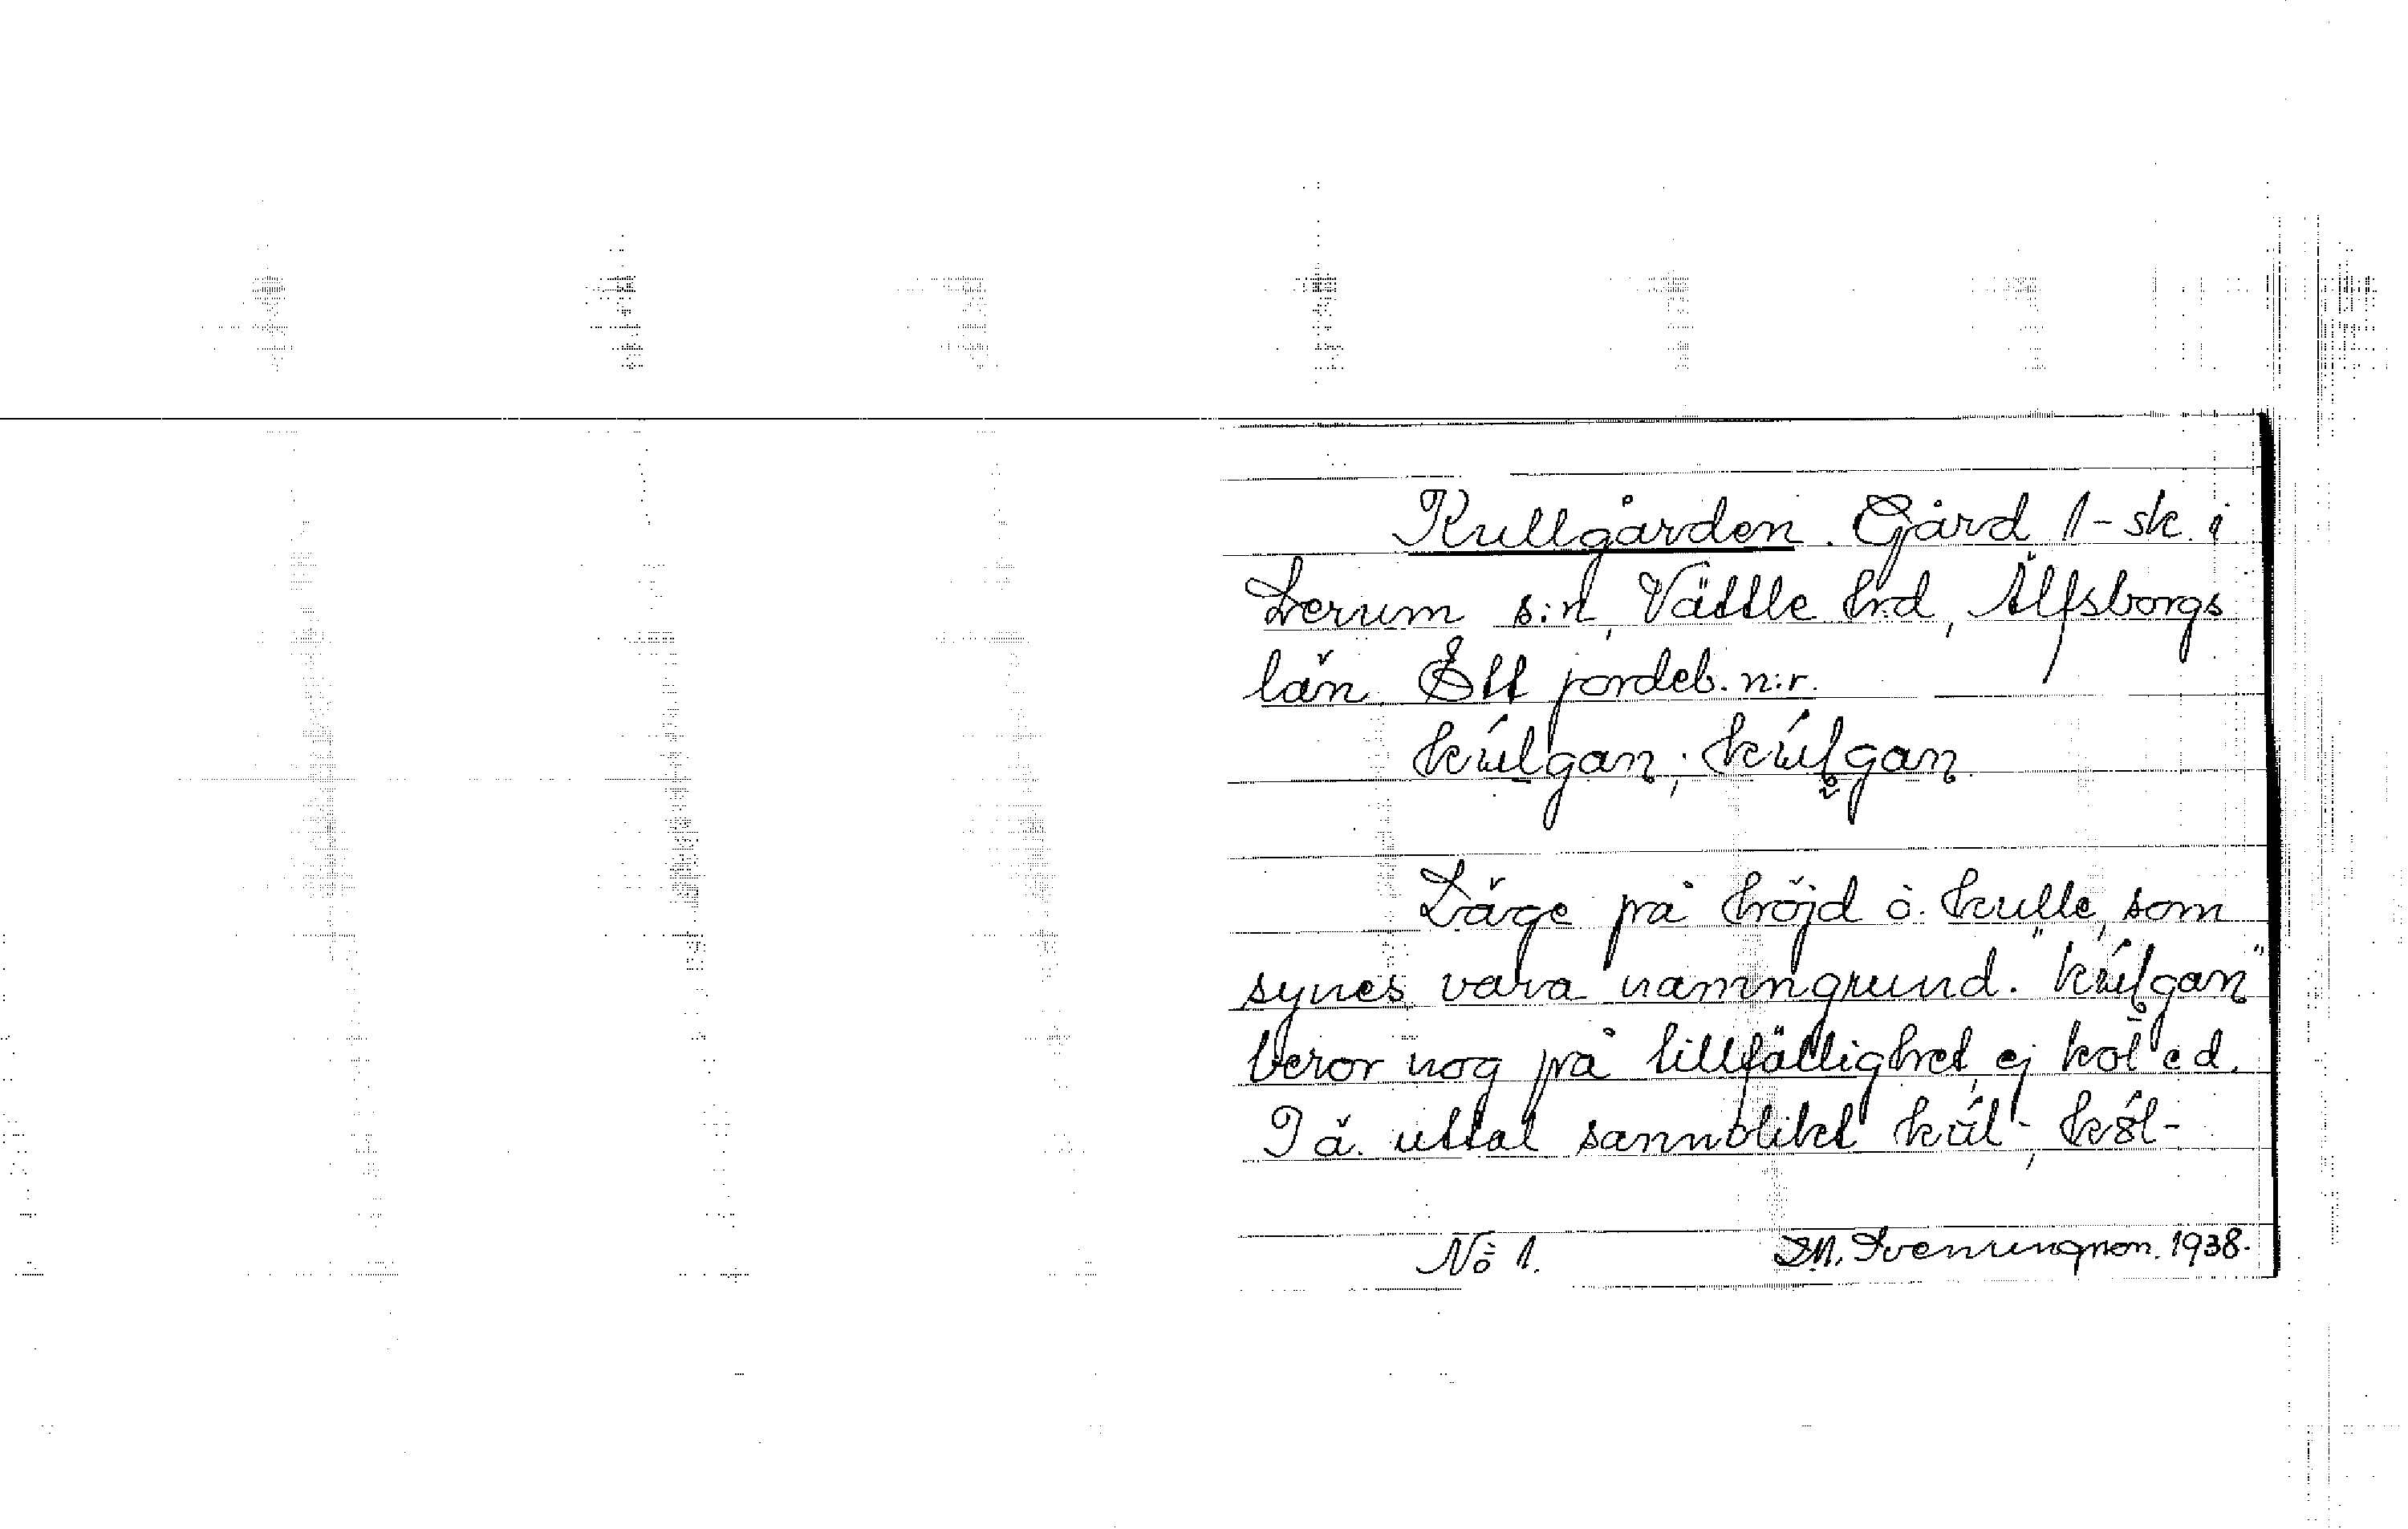 Kullgården. Gård 1-sk. i
Lerum s:n, Vättle hrd, Älfsborgs
län. Ett jordeb. n:r.
kúlgan; kúlgan
Läge på höjd o. kulle, som
synes vara namngrund. "kúlgan"
beror nog på tillfällighet, ej kol e.d.
I ä. uttal sannolikt kúl-, 
No 1. 1938.